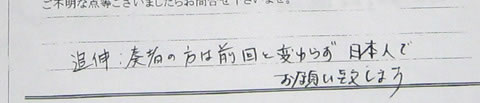 ご不明な点等ございましたらお問合せ下さいませ。
追伸:奏者の方は前回と変わらず日本人で
お願い致します